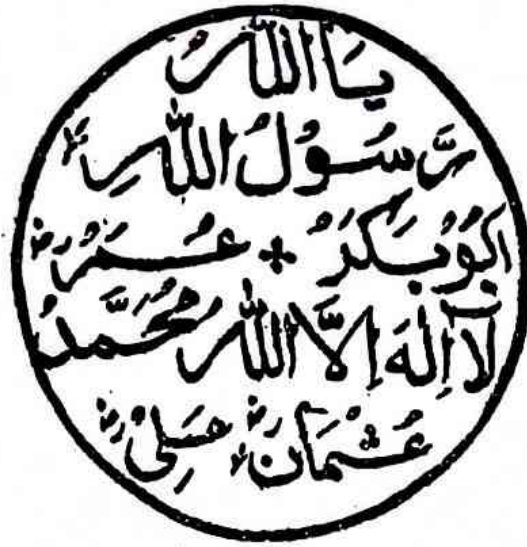 يَا اَللّٰهُ
رَّسُوْلُ اللّٰهِ ؐ
اَبُوْبَكَرُؓ + عُمَرُؓ
لَآ اِلٰهَ اِلَّا اللّٰهُ مُحَمَّدُ
عُثْمَانَؓ عَلِیْؓ